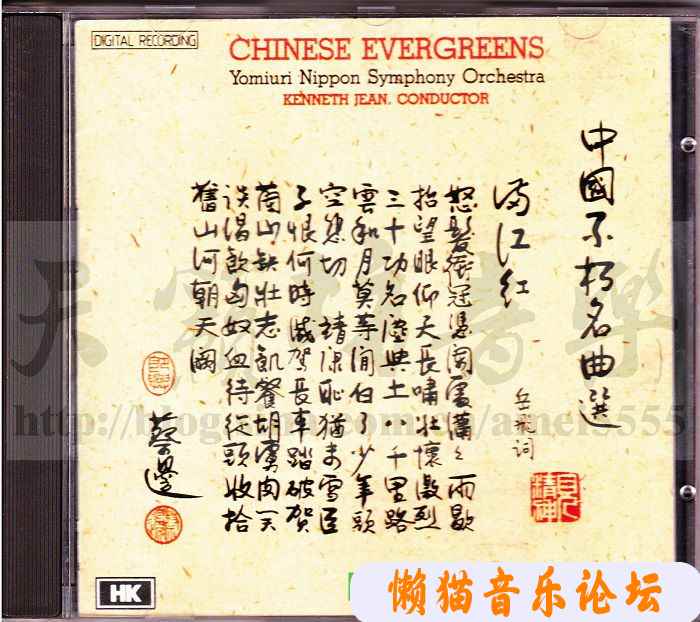 DIGITAL RECORDING
CHINESE EVERGREENS
Yomiuri Nippon Symphony Orchestra
KENNETH JEAN. CONDUCTOR
中國不朽名曲選
滿江红
岳飛词
怒髮衝冠憑闌處瀟々雨歇
抬望眼仰天長嘯壯懷激烈
三十功名塵與土八千里路
雲和月莫等閒白了少年頭
空悲切 靖康恥猶未雪臣
子恨何時滅駕長車踏破賀
蘭山缺壯志飢餐胡虜肉笑
談渴飲匈奴血待從頭收拾
舊山河朝天闕
HK
懒猫音乐论坛